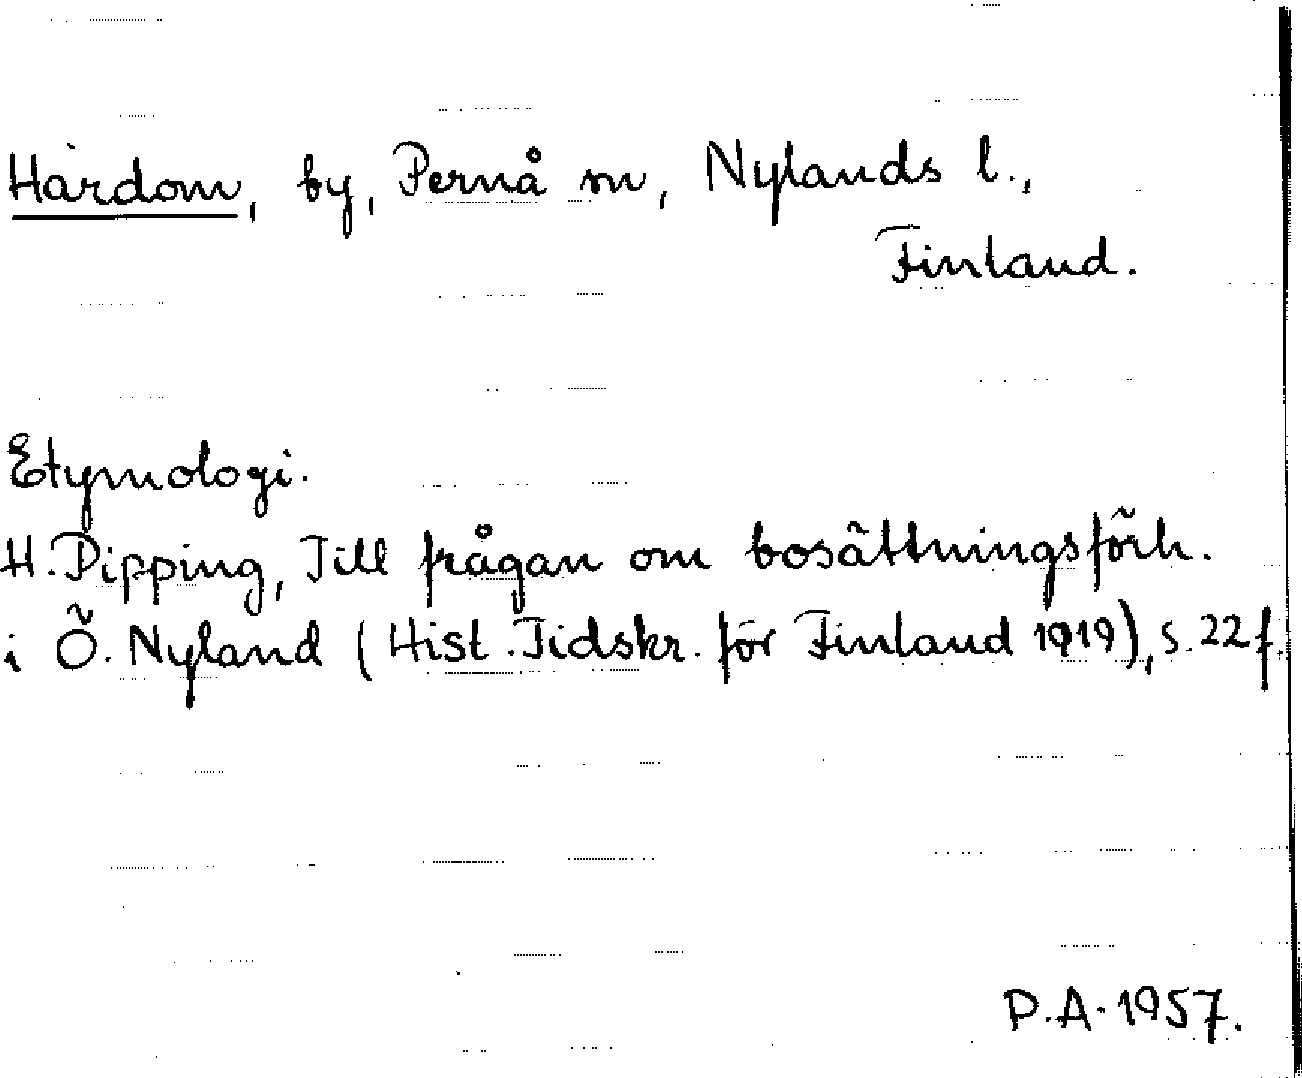 Hårdom, by, Pernå sn, Nylands l.,
Finland.
Etymologi.
H. Pipping, Till frågan om bosättningsförh.
i Ö. Nyland (Hist. Tidskr. för Finland 1919), s. 22 f.
P.A. 1957.